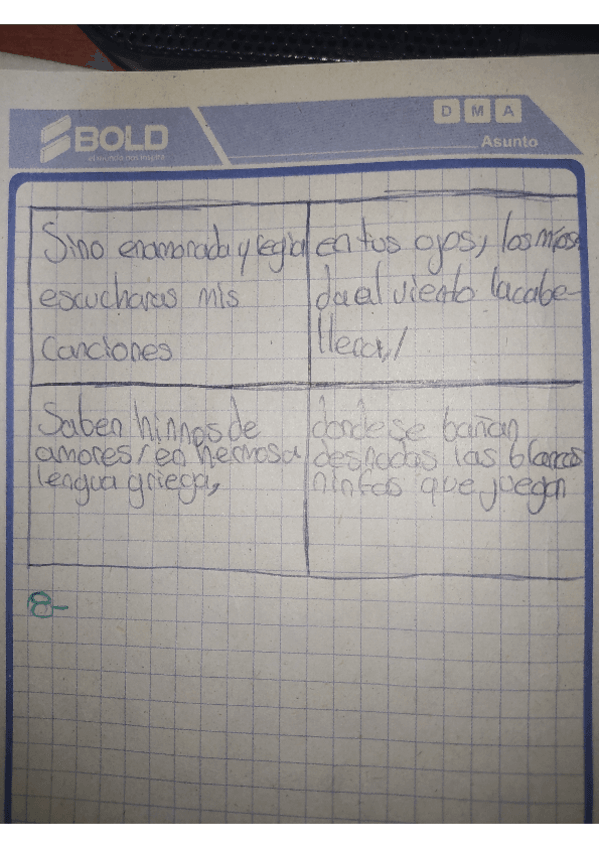 BOLD
D M A
Asunto
Sino enamorada y regia
escucharas mis
canciones
en tus ojos, los míos
da el viento la cabe-
llera,/
Saben hinnos de
amores/ en hermosa
lengua griega,
donde se bañan
desnudas las blancas
ninfas que juegan
8-